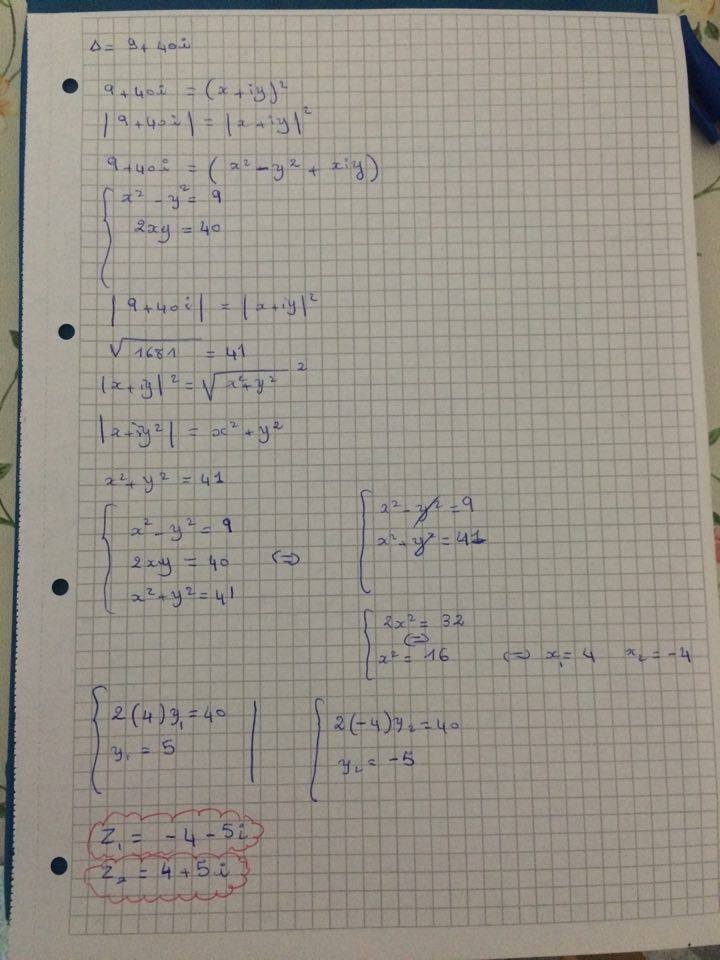 Δ = 9+40i
9+40i = (x+iy)²
|9+40i| = |x+iy|²
9+40i = (x²-y²+xiy)
x²-y² = 9
2xy = 40
|9+40i| = |x+iy|²
√1681 = 41
|x+iy|² = √x²+y² ²
|x+iy²| = x²+y²
x²+y² = 41
x²-y² = 9
2xy = 40 (=)
x²+y² = 41
x²-y² = 9
x²+y² = 41
2x² = 32
(=)
x² = 16 (=) x₁ = 4 x₂ = -4
2(4)y₁ = 40
y₁ = 5
2(-4)y₂ = 40
y₂ = -5
Z₁ = -4-5i
Z₂ = 4+5i